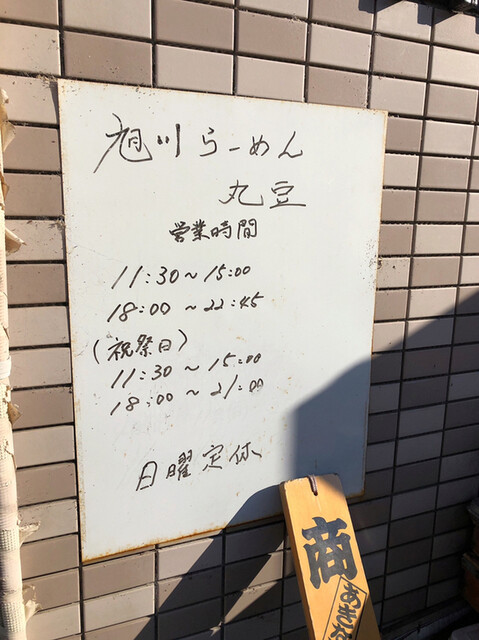 旭川らーめん
丸豆
営業時間
11:30~15:00
18:00~22:45
(祝祭日)
11:30~15:00
18:00~21:00
日曜定休
商